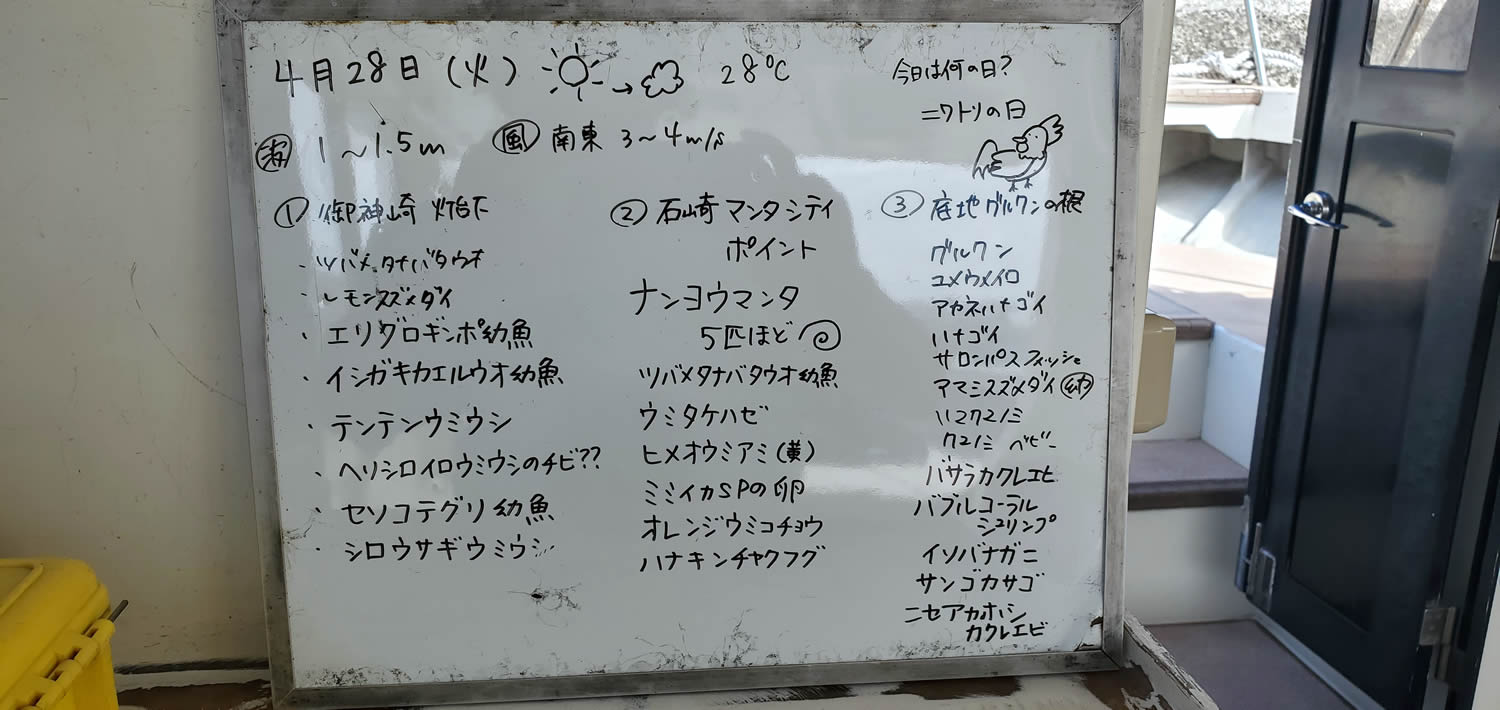 4月28日(火) → 28℃
今日は何の日?
ニワトリの日
海 1〜1.5m 風 南東 3〜4m/s
① 御神崎 灯台下
・ツバメタナバタウオ
・レモンスズメダイ
・エリグロギンポ幼魚
・イシガキカエルウオ幼魚
・テンテンウミウシ
・ヘリシロイロウミウシのチビ??
・セソコテグリ幼魚
・シロウサギウミウシ
② 石崎マンタシティ
ポイント
ナンヨウマンタ
5匹ほど
ツバメタナバタウオ幼魚
ウミタケハゼ
ヒメオウミアミ(黄)
ミミイカSPの卵
オレンジウミコチョウ
ハナキンチャクフグ
③ 底地グルクンの根
グルクン
ユメウメイロ
アカネハナゴイ
ハナゴイ
サロンパスフィッシュ
アマミスズメダイ 幼
ハマクマノミ
クマノミ ベビー
バサラカクレエビ
バブルコーラル
シュリンプ
イソバナガニ
サンゴカサゴ
ニセアカホシ
カクレエビ